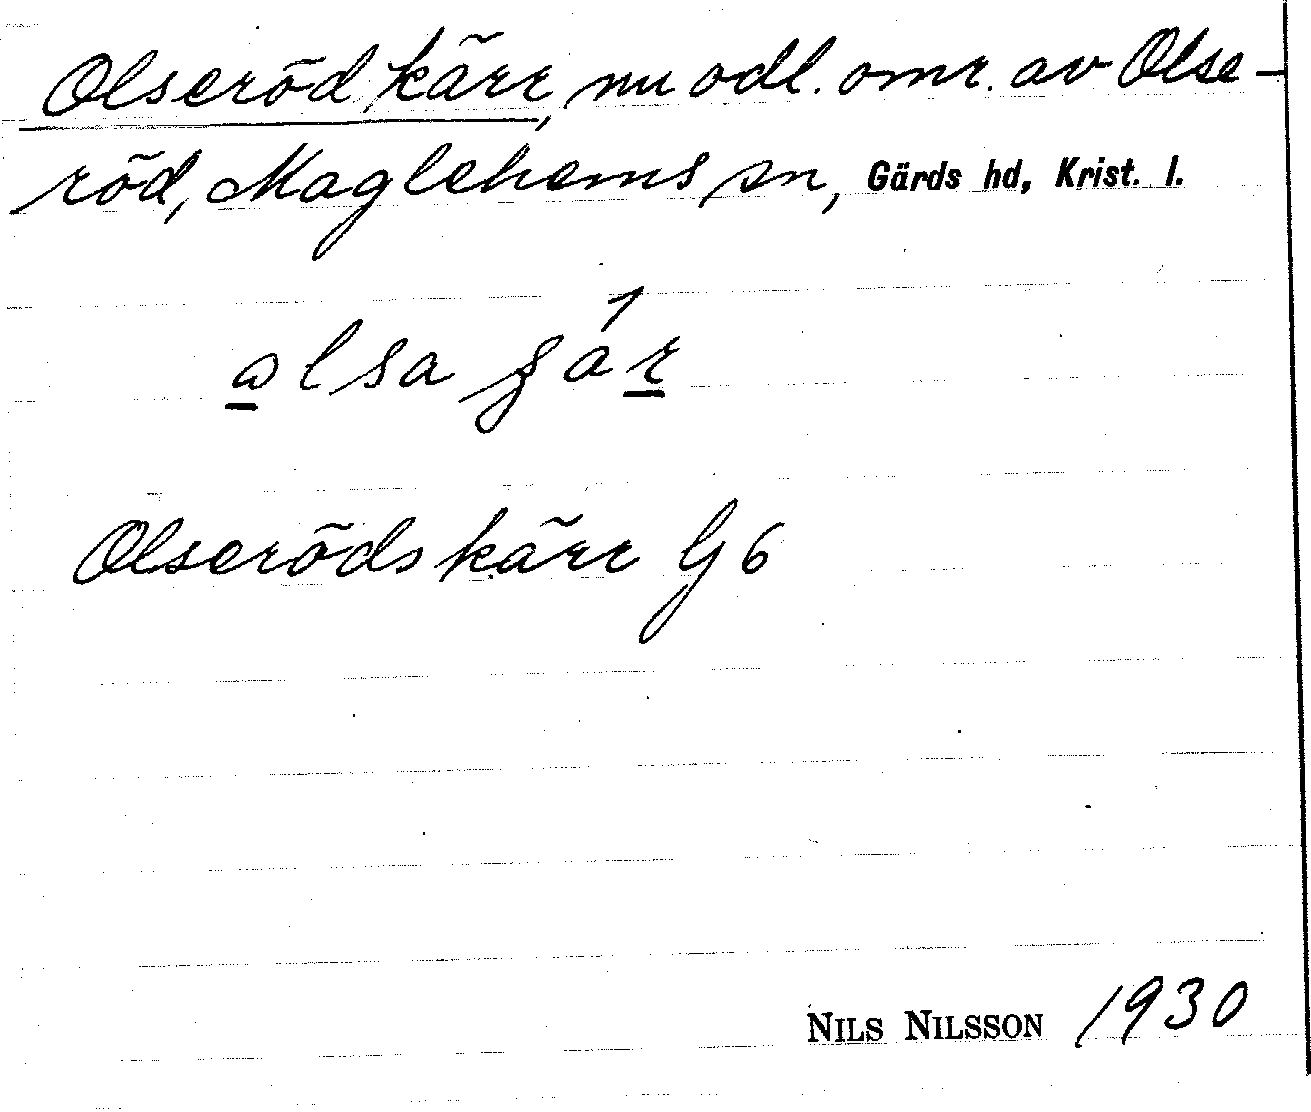 Olseröd kärr, nu odl. omr. av Olse-
röd, Maglehems sn, Gärds hd, Krist. l.
Olseröds kärr G 6
NILS NILSSON 1930